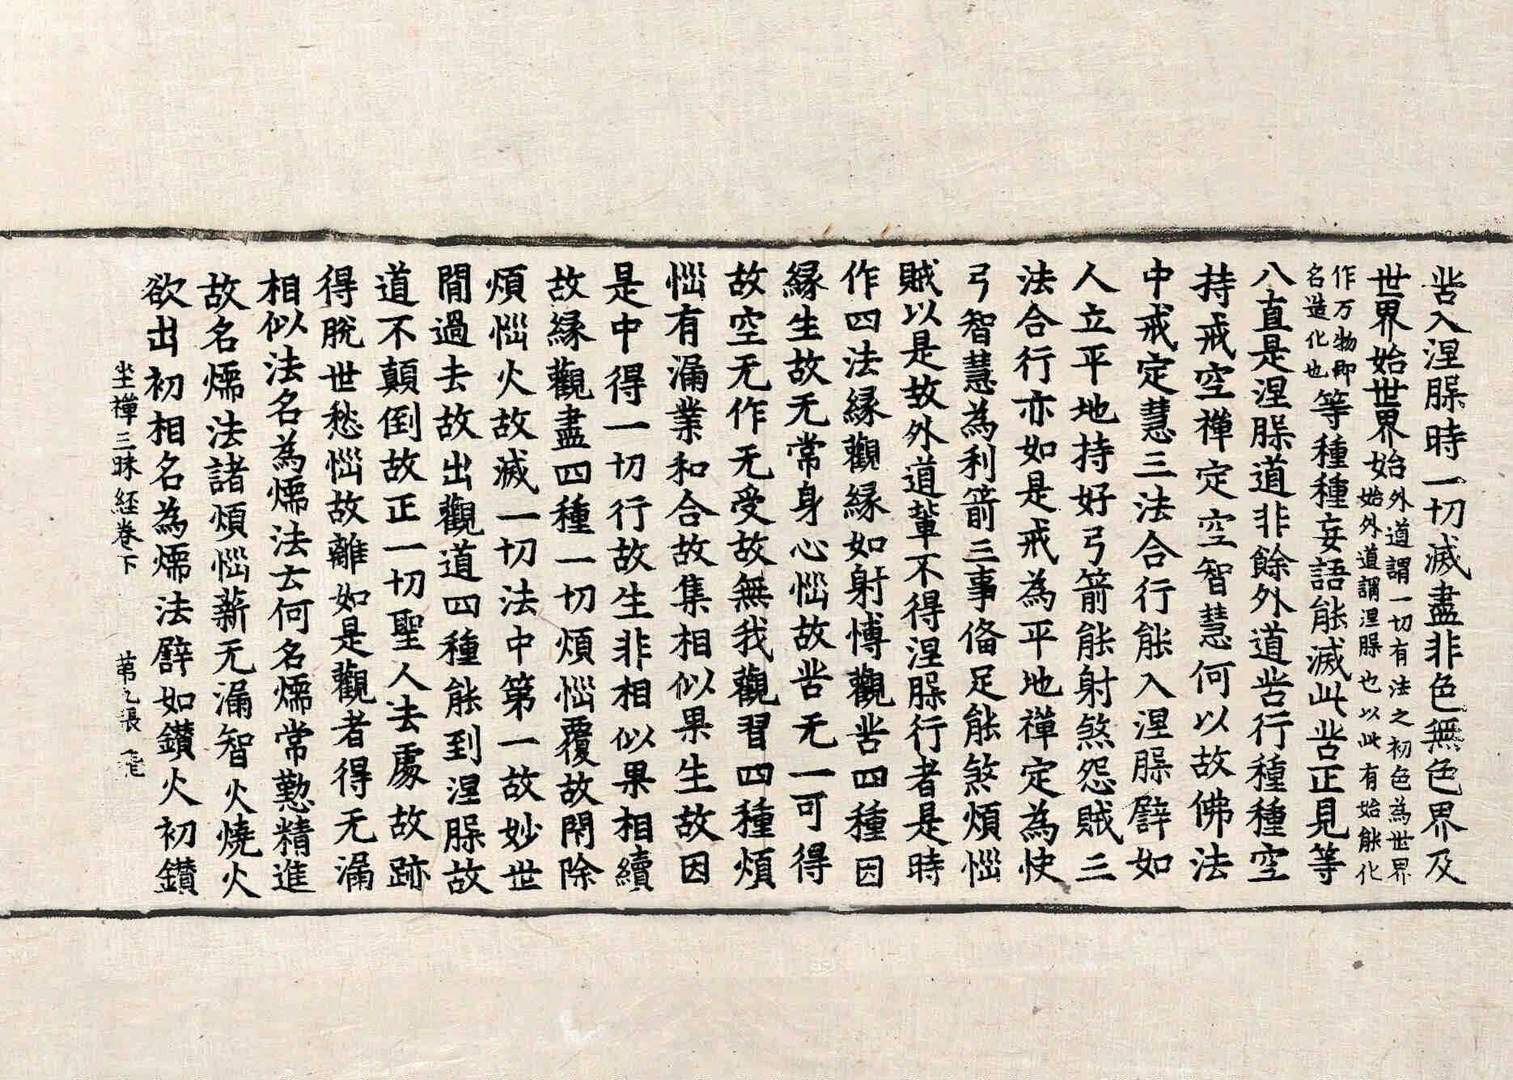 苦入涅槃時一切滅盡非色無色界及
世界始世界始外道謂一切有法之初色為世界
始外道謂涅槃也以此有始能化
作万物即
名造化也
等種種妄語能滅此苦正見等
八直是涅槃道非餘外道苦行種種空
持戒空禪定空智慧何以故佛法
中戒定慧三法合行能入涅槃譬如
人立平地持好弓箭能射煞怨賊三
法合行亦如是戒為平地禪定為快
弓智慧為利箭三事俻足能煞煩惱
賊以是故外道輩不得涅槃行者是時
作四法緣觀緣如射博觀苦四種因
緣生故无常身心惱故苦无一可得
故空无作无受故無我觀習四種煩
惱有漏業和合故集相似果生故因
是中得一切行故生非相似果相續
故緣觀盡四種一切煩惱覆故閇除
煩惱火故滅一切法中第一故妙世
間過去故出觀道四種能到涅槃故
道不顛倒故正一切聖人去處故跡
得脫世愁惱故離如是觀者得无漏
相似法名為燸法云何名燸常懃精進
故名燸法諸煩惱薪无漏智火燒火
欲出初相名為燸法譬如鑽火初鑽
坐禪三昧経卷下 第 張